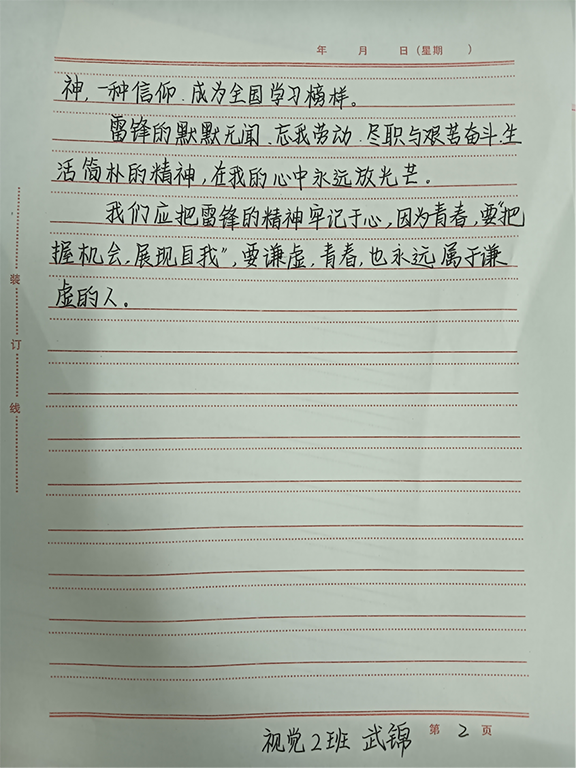 年 月 日(星期 )
神,一种信仰.成为全国学习榜样。
雷锋的默默无闻、忘我劳动.尽职与艰苦奋斗.生
活简朴的精神,在我的心中永远放光芒。
我们应把雷锋的精神牢记于心,因为青春,要“把
握机会,展现自我”,要谦虚,青春,也永远属于谦
虚的人。
装
订
线
视觉2班 武锦 第 2 页